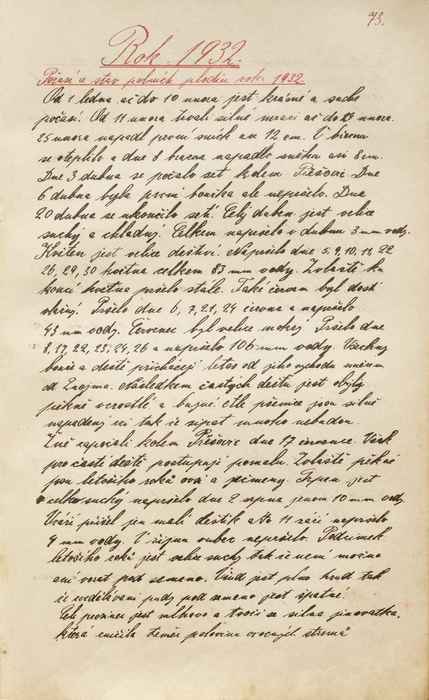 73.
Rok 1932.
Počasí a stav polních plodin roku 1932
Od 1 ledna až do 10 února jest krásné a suché
počasí. Od 11 února trvali silné mrazi až do 23 února.
25 února napadl první sních asi 12 cm. V březnu
se oteplilo a dne 8 března napadlo sněhu asi 8 cm.
Dne 3 dubna se počalo set kolem Přešovic. Dne
6 dubna byla první bouřka ale nepršelo. Dne
20 dubna se ukončilo setí. Celý duben jest velice
suchý a chladný. Celkem napršelo v dubnu 3 mm vody.
Květen jest velice deštiví. Napršelo dne 5, 9, 10, 11, 22
26, 29, 30 května celkem 83 mm vody. Zvláště ku
konci května pršelo stále. Také červen byl dosti
vlhký. Pršelo dne 6, 7, 21, 24 června a napršelo
43 mm vody. Červenec byl velice mokrý. Pršelo dne
8, 17, 22, 23, 24, 26 a napršelo 106 mm vody. Všechny
bouře a deště přicházejí letos od jihovýchodu
od Znojma. Následkem častých dešťů jest obylý
pěkně vzrostlé a bujné ale pšenice jsou silně
napadeny rzí tak že sypat mnoho nebudou.
Žně započali kolem Přešovic dne 17 července. Však
pro časté deště postupují pomalu. Zvláště pěkné
jsou letošního roku ovsi a ječmeny. Srpen jest
celkem suchý napršelo dne 2 srpna jenom 10 mm vody
V září přišel jen malí deštík a to 11 září napršelo
4 mm vody. V říjnu vubec nepršelo. Podzimek
letošího roku jest velice suchý tak že není možno
ani vorat pod semeno. Všud jest plno hrud tak
že vzdělávání pudy pod semeno jest špatné.
Celý prosinec jest mlhavo a tvoří se silná jinovatka,
která zničila téměř polovinu ovocných stromů